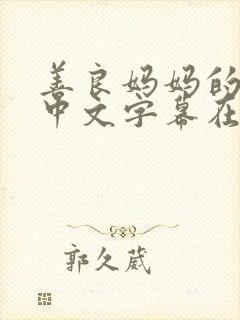 善良妈妈的
中文字幕在
郭久葳